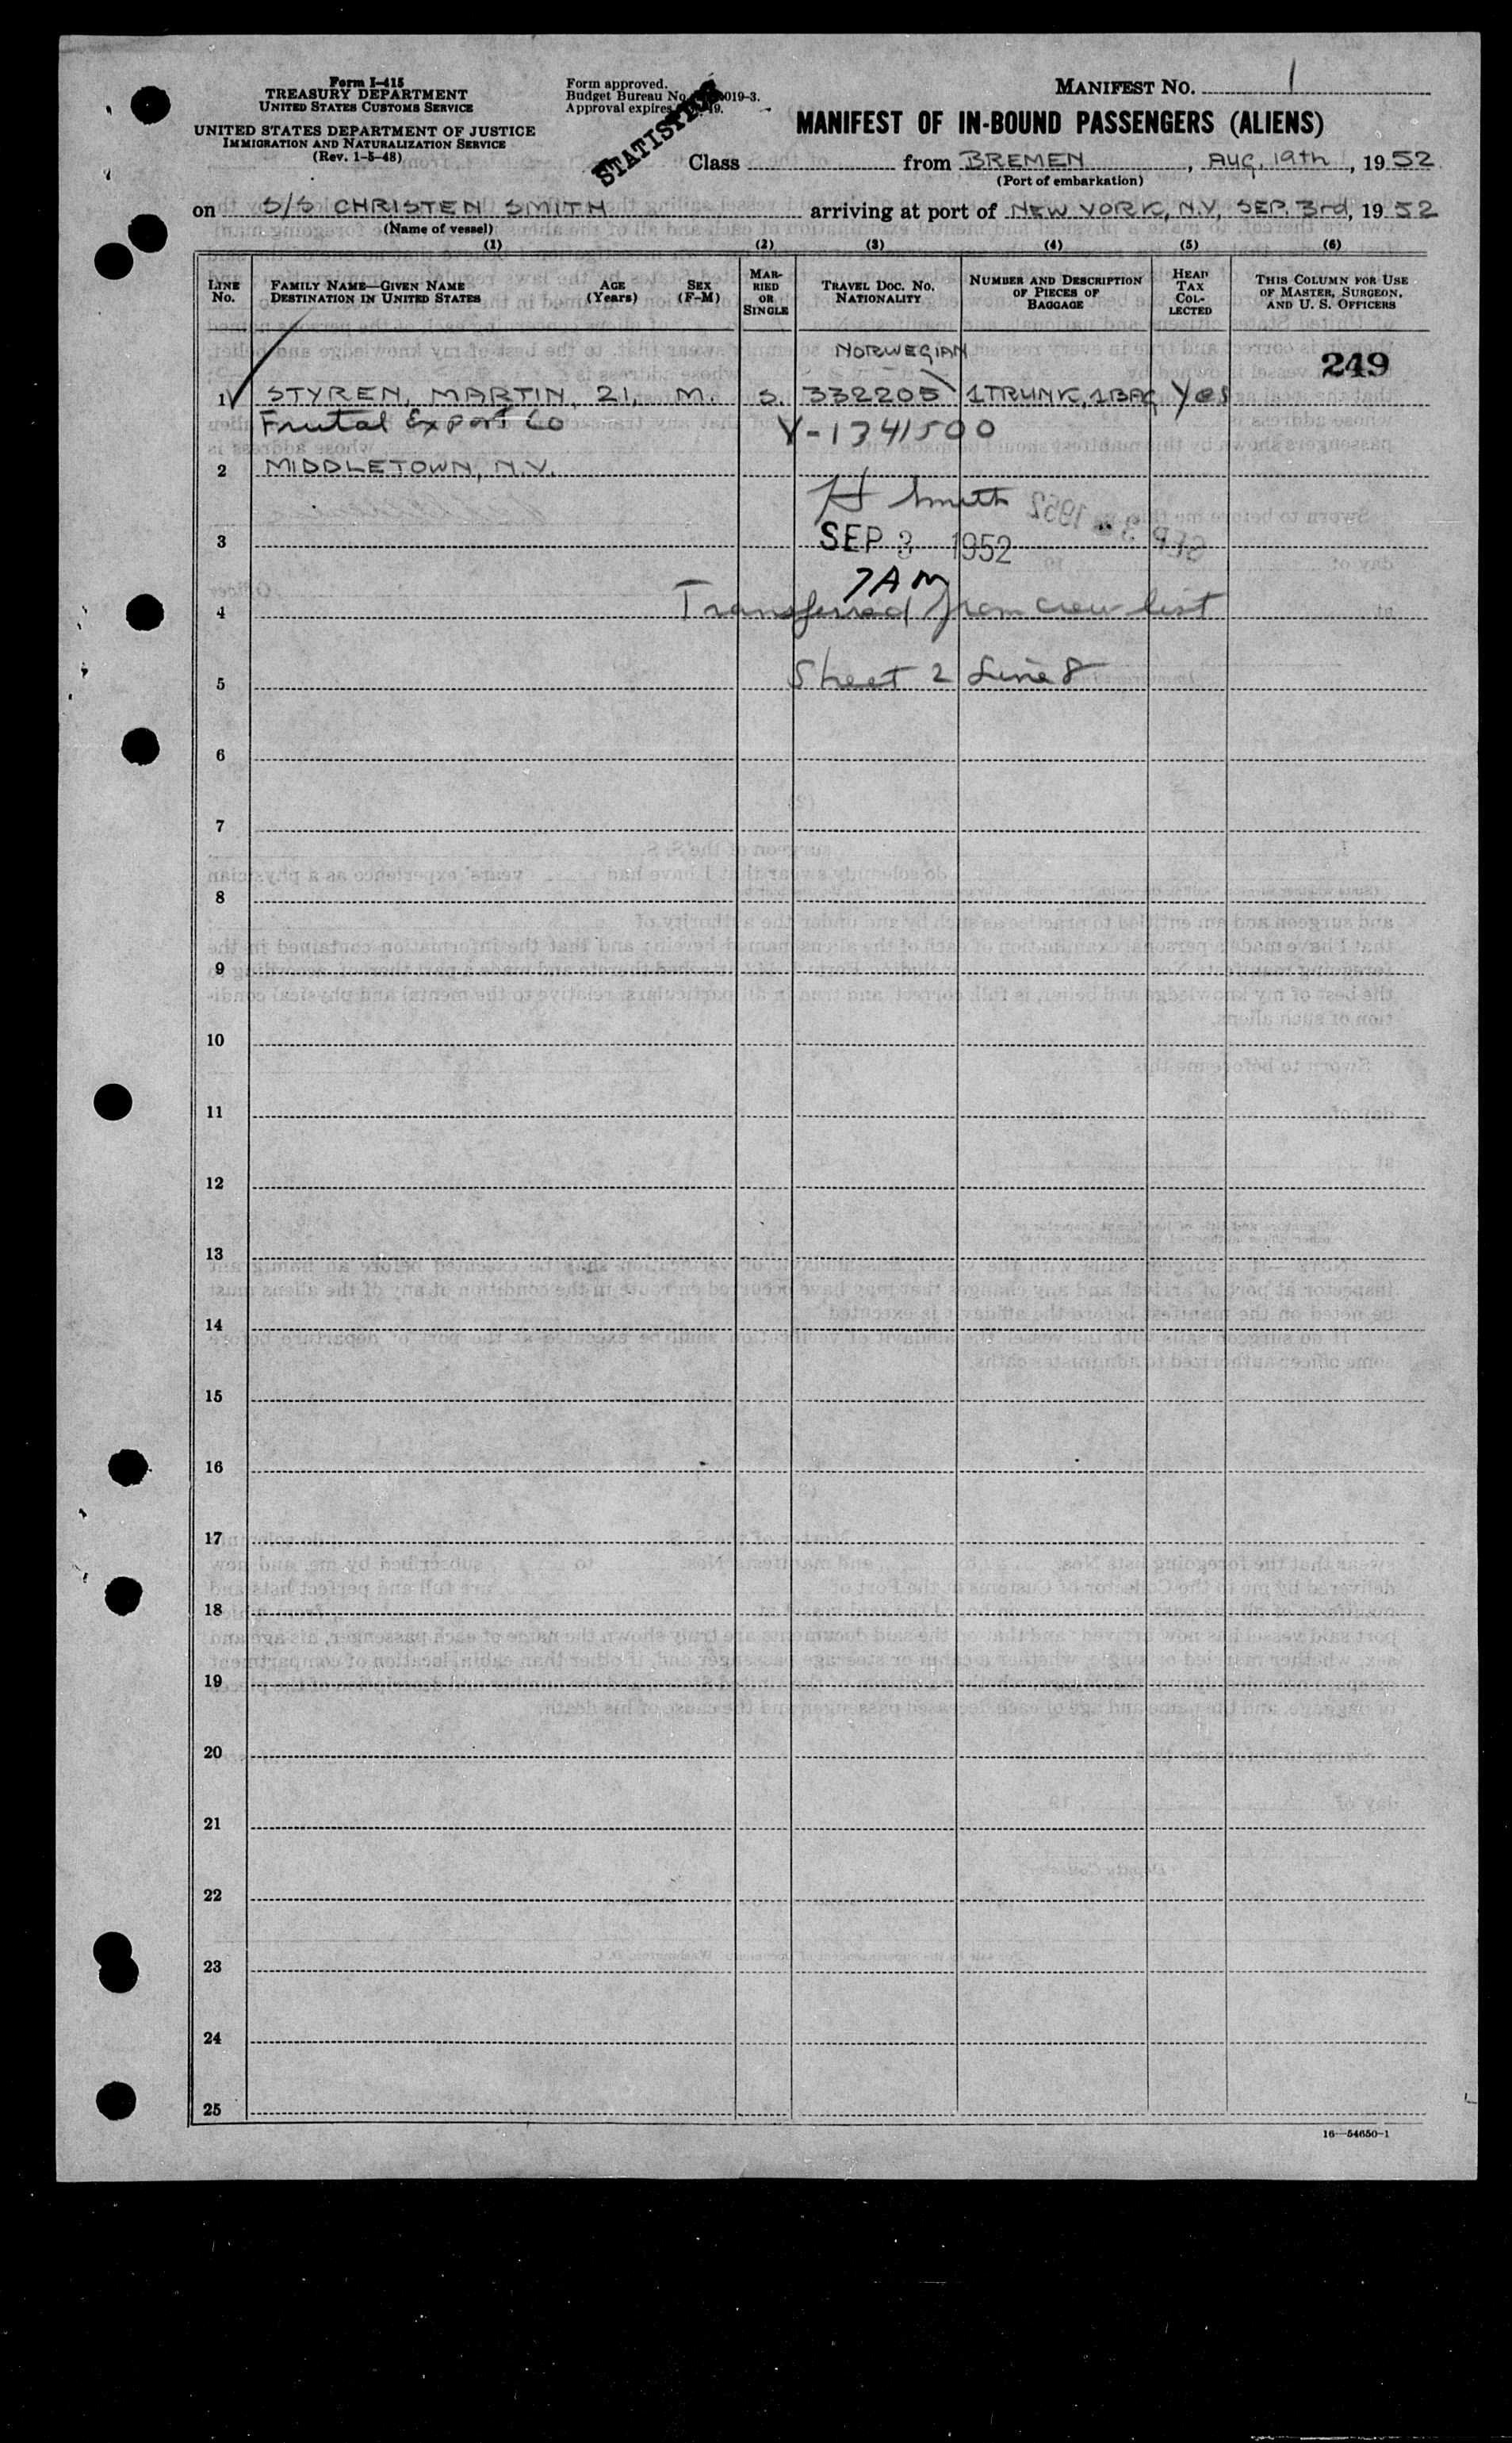 Form I-415
TREASURY DEPARTMENT
UNITED STATES CUSTOMS SERVICE
UNITED STATES DEPARTMENT OF JUSTICE
IMMIGRATION AND NATURALIZATION SERVICE
(Rev. 1-5-48)
Form approved.
Budget Bureau No. 019-3.
Approval expires 49.
STATISTICS
MANIFEST NO. 1
MANIFEST OF IN-BOUND PASSENGERS (ALIENS)
Class from BREMEN, AUG. 19th, 1952
(Port of embarkation)
on S/S CHRISTEN SMITH arriving at port of NEW YORK, N.Y, SEP. 3rd, 1952
(Name of vessel)
(1) (2) (3) (4) (5) (6)
LINE No.
FAMILY NAME—GIVEN NAME
DESTINATION IN UNITED STATES
AGE (Years)
SEX (F-M)
MAR-RIED OR SINGLE
TRAVEL DOC. NO. NATIONALITY
NUMBER AND DESCRIPTION OF PIECES OF BAGGAGE
HEAD TAX COL-LECTED
THIS COLUMN FOR USE OF MASTER, SURGEON, AND U. S. OFFICERS
NORWEGIAN
249
1 STYREN, MARTIN, 21, M. S. 332205 1 TRUNK, 1 BAG Yes
Frutal Export Co V-1341500
2 MIDDLETOWN, N.Y.
H Smith
3 SEP 3 1952
7AM
4 Transferred from crew list
5 Sheet 2 Line 8
6
7
8
9
10
11
12
13
14
15
16
17
18
19
20
21
22
23
24
25
16—54650-1